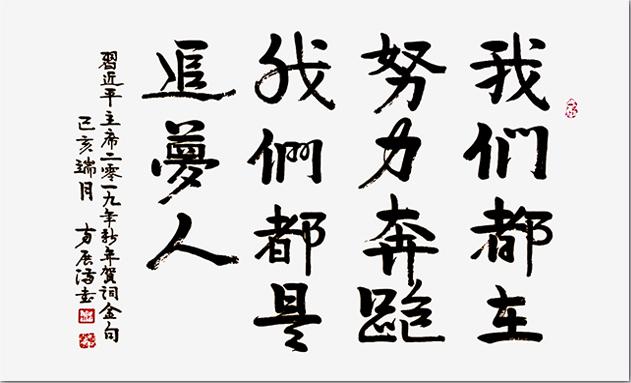 我们都在
努力奔跑
我們都是
追夢人
習近平主席二零一九年新年賀詞金句
己亥瑞月 方展